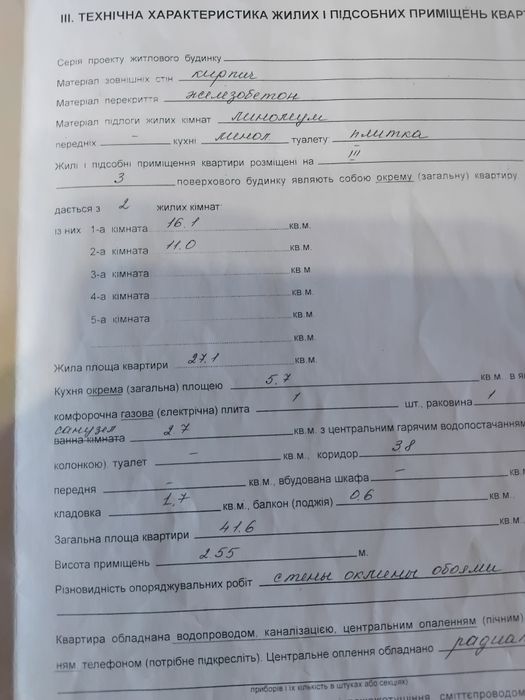 ІІІ. ТЕХНІЧНА ХАРАКТЕРИСТИКА ЖИЛИХ І ПІДСОБНИХ ПРИМІЩЕНЬ КВАРТ
Серія проекту житлового будинку
Матеріал зовнішніх стін кирпич
Матеріал перекриття железобетон
Матеріал підлоги жилих кімнат линолеум
передніх – кухні линол туалету плитка
Жилі і підсобні приміщення квартири розміщені на ІІІ
3 поверхового будинку являють собою окрему (загальну) квартиру,
дається з 2 жилих кімнат:
із них 1-а кімната 16.1 кв.м.
2-а кімната 11.0 кв.м.
3-а кімната кв.м
4-а кімната кв.м.
5-а кімната кв.м.
кв.м.
Жила площа квартири 27.1 кв.м.
Кухня окрема (загальна) площею 5.7 кв.м. в як
комфорочна газова (електрична) плита 1 шт., раковина 1
санузел
ванна кімната 2.7 кв.м. з центральним гарячим водопостачанням
колонкою). туалет – кв.м., коридор 3.8
передня – кв.м., вбудована шкафа – кв.м
кладовка 1,7 кв.м., балкон (лоджія) 0,6 кв.м.,
Загальна площа квартири 41.6 кв.м.
Висота приміщень 2.55 м.
Різновидність опоряджувальних робіт стены оклеены обоями
Квартира обладнана водопроводом, каналізацією, центральним опаленням (пічним)
ням телефоном (потрібне підкресліть). Центральне оплення обладнано радиа
приборів і їх кількість в штуках або секціях)
сміттєпроводом